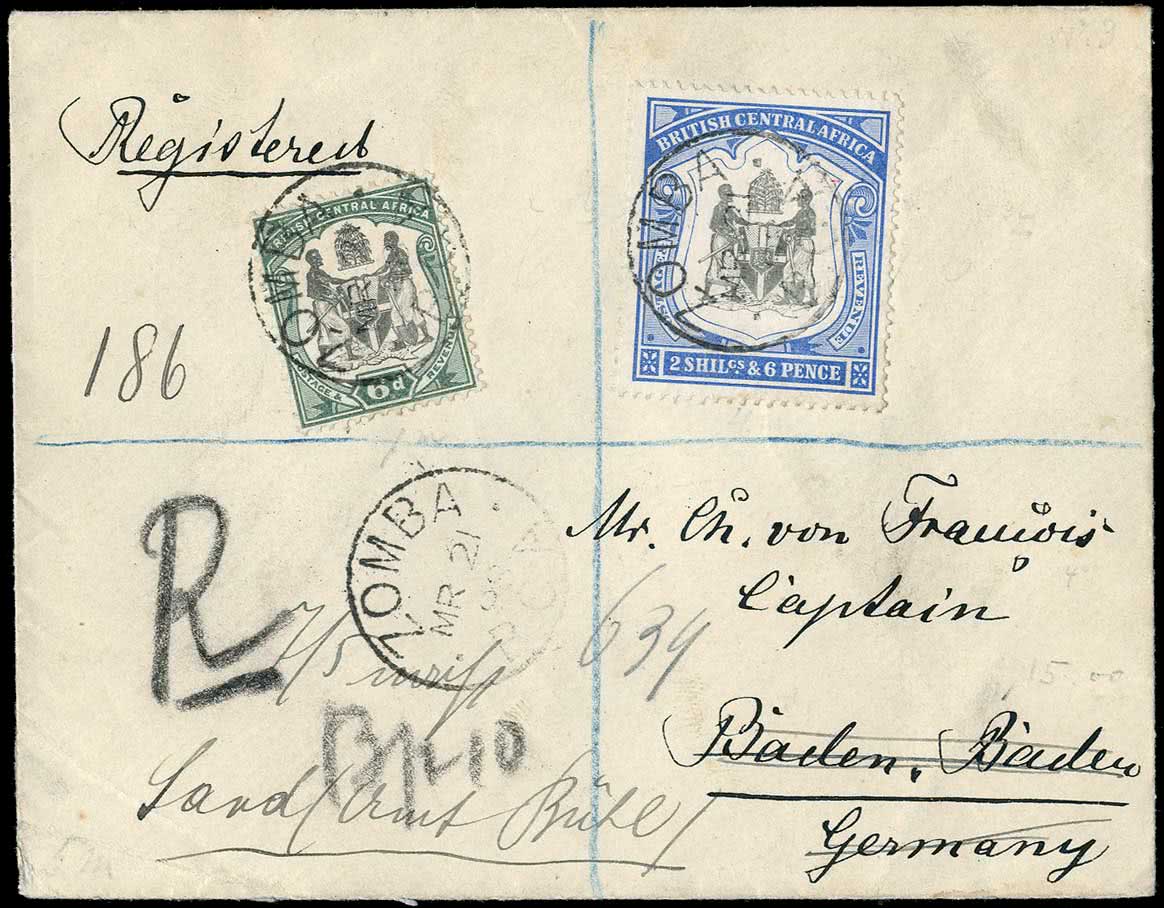 Registered
BRITISH CENTRAL AFRICA
ZOMBA
POSTAGE & REVENUE
6d
BRITISH CENTRAL AFRICA
ZOMBA
MR 21
POSTAGE & REVENUE
2 SHILGS & 6 PENCE
186
R
ZOMBA
MR 21
B.C.A
Mr. Ch. von François
Captain
634
15.00
Baden, Baden
Germany
Sand (Amt Bühl)